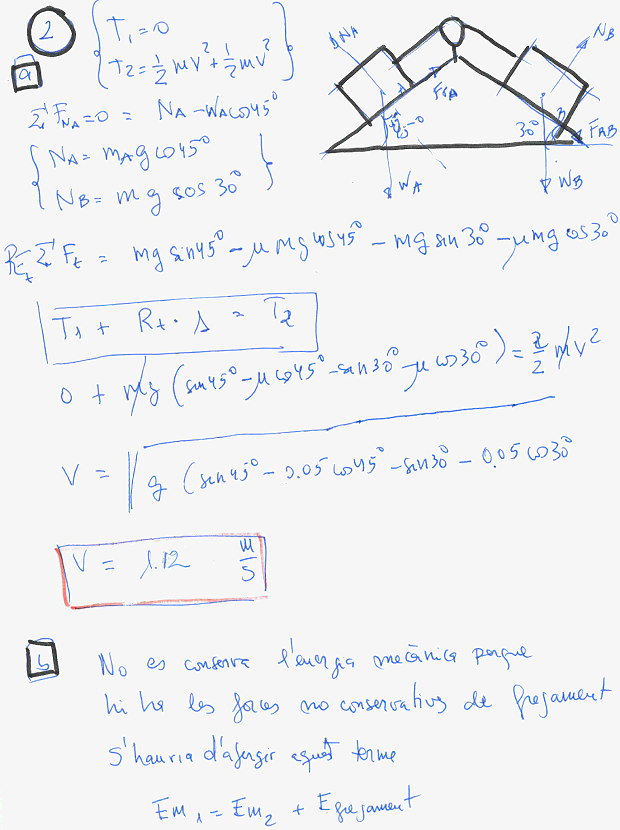 2
a
T₁ = 0
T₂ = ½ mV² + ½ mV²
N_A
N_B
F_rA
45°
30°
B
F_AB
W_A
W_B
Σ F_NA = 0 = N_A - W_A cos 45°
N_A = m_A g cos 45°
N_B = m g cos 30°
Σ F_t = mg sin 45° - μ mg cos 45° - mg sin 30° - μ mg cos 30°
T₁ + R_t · Δ = T₂
0 + mg (sin 45° - μ cos 45° - sin 30° - μ cos 30°) = 2/2 mV²
V = √ g (sin 45° - 0.05 cos 45° - sin 30° - 0.05 cos 30°
V = 1.12 m/s
b
No es conserva l'energia mecànica perque
hi ha les forces no conservatives de fregament
S'hauria d'afegir aquest terme
Em₁ = Em₂ + E fregament